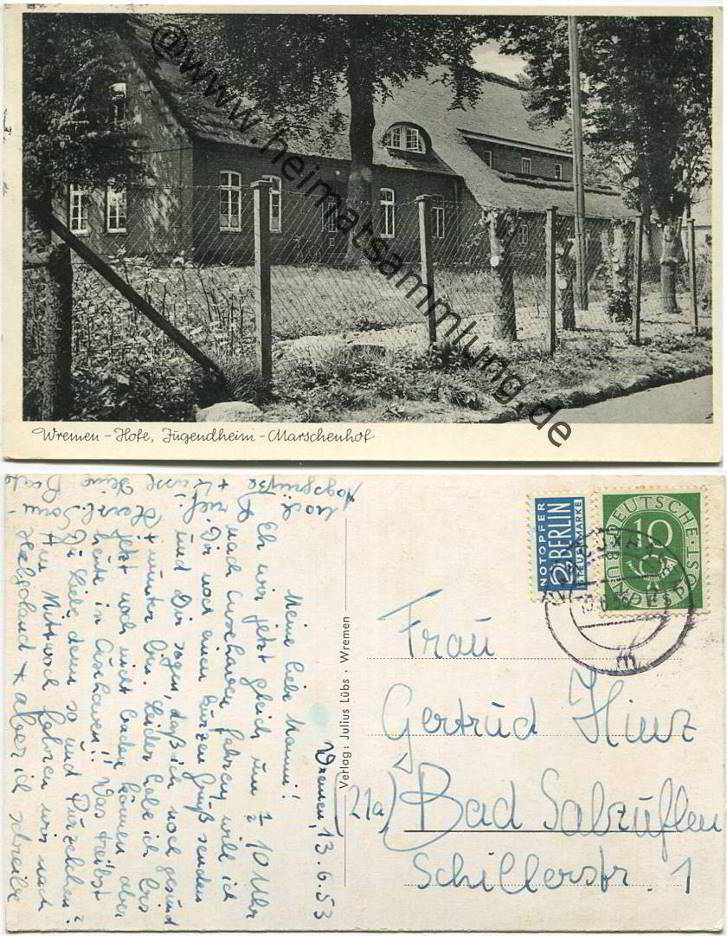 @www.heimatsammlung.de
Wremen - Hofe, Jugendheim - Marschenhof
Wremen, 13.6.53
Meine liebe Mammi!!
Eh wir jetzt gleich um ½ 10 Uhr
nach Cuxhaven fahren, will ich
Dir noch einen kurzen Gruß senden
und Dir sagen, daß ich noch gesund
+ munter bin. Leider habe ich bis
jetzt noch nicht baden können, aber
heute in Cuxhaven!! Was treibst
Du Liebe denn so und Purzelchen?
Am Mittwoch fahren wir nach
Helgoland + aber ich schreibe
noch
+ Küsse Deine
Verlag: Julius Lübs · Wremen
NOTOPFER
2 BERLIN
STEUERMARKE
DEUTSCHE
BUNDESPOST
10
Frau
Gertrud Hinz
(21a) Bad Salzuflen
Schillerstr. 1